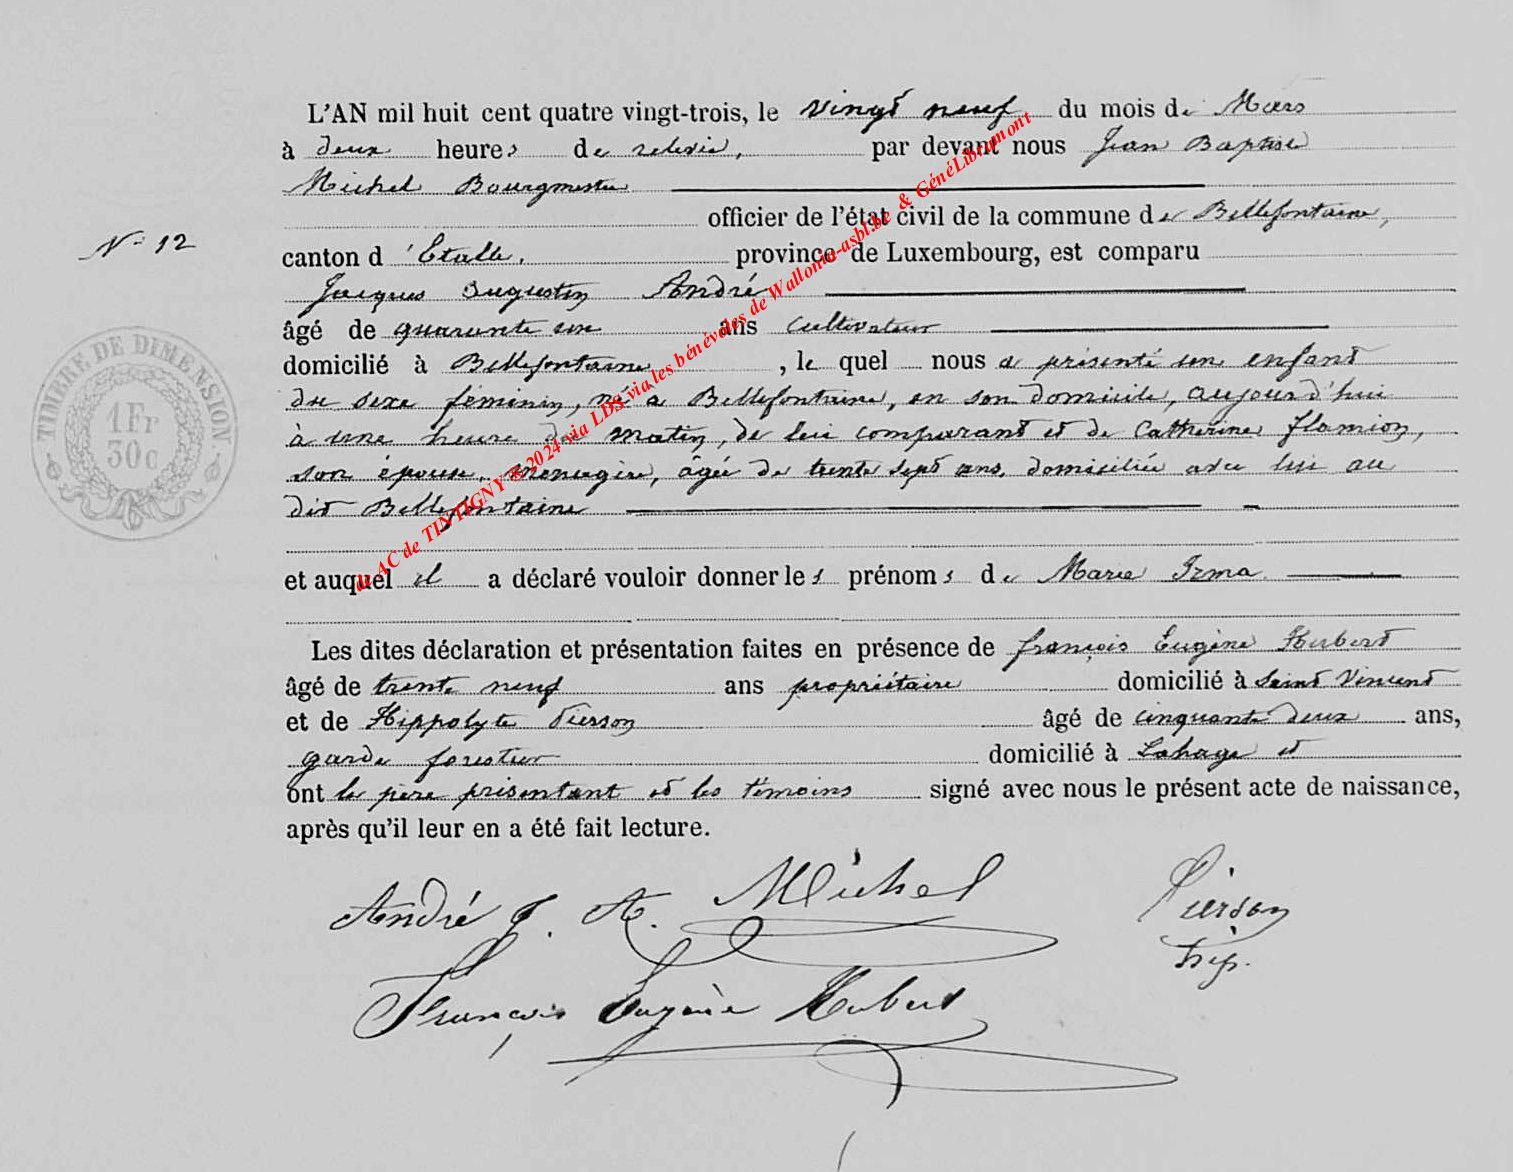 L'AN mil huit cent quatre vingt-trois, le vingt neuf du mois de Mars
à deux heures de relevée, par devant nous Jean Baptiste
Michel Bourgmestre
officier de l'état civil de la commune de Bellefontaine,
N° 12
canton d'Etalle, province de Luxembourg, est comparu
Jacques Augustin André
âgé de quarante six ans cultivateur
domicilié à Bellefontaine, le quel nous a présenté un enfant
du sexe féminin, né à Bellefontaine, en son domicile, aujourd'hui
à une heure du matin, de lui comparant et de Catherine Flamion,
son épouse, ménagère, âgée de trente sept ans, domiciliée avec lui au
dit Bellefontaine
et auquel il a déclaré vouloir donner les prénoms de Marie Irma
Les dites déclaration et présentation faites en présence de François Eugène Hubert
âgé de trente neuf ans propriétaire domicilié à Saint Vincent
et de Hippolyte Pierson âgé de cinquante deux ans,
garde forestier domicilié à Lahage et
ont le père présentant et les témoins signé avec nous le présent acte de naissance,
après qu'il leur en a été fait lecture.
André J. A. Michel Pierson
Hip.
François Eugène Hubert
TIMBRE DE DIMENSION
1 Fr
30 c
AC de TINTIGNY ® 2024 via LDS via les bénévoles de Wallonia-asbl.be & GénéLibramont